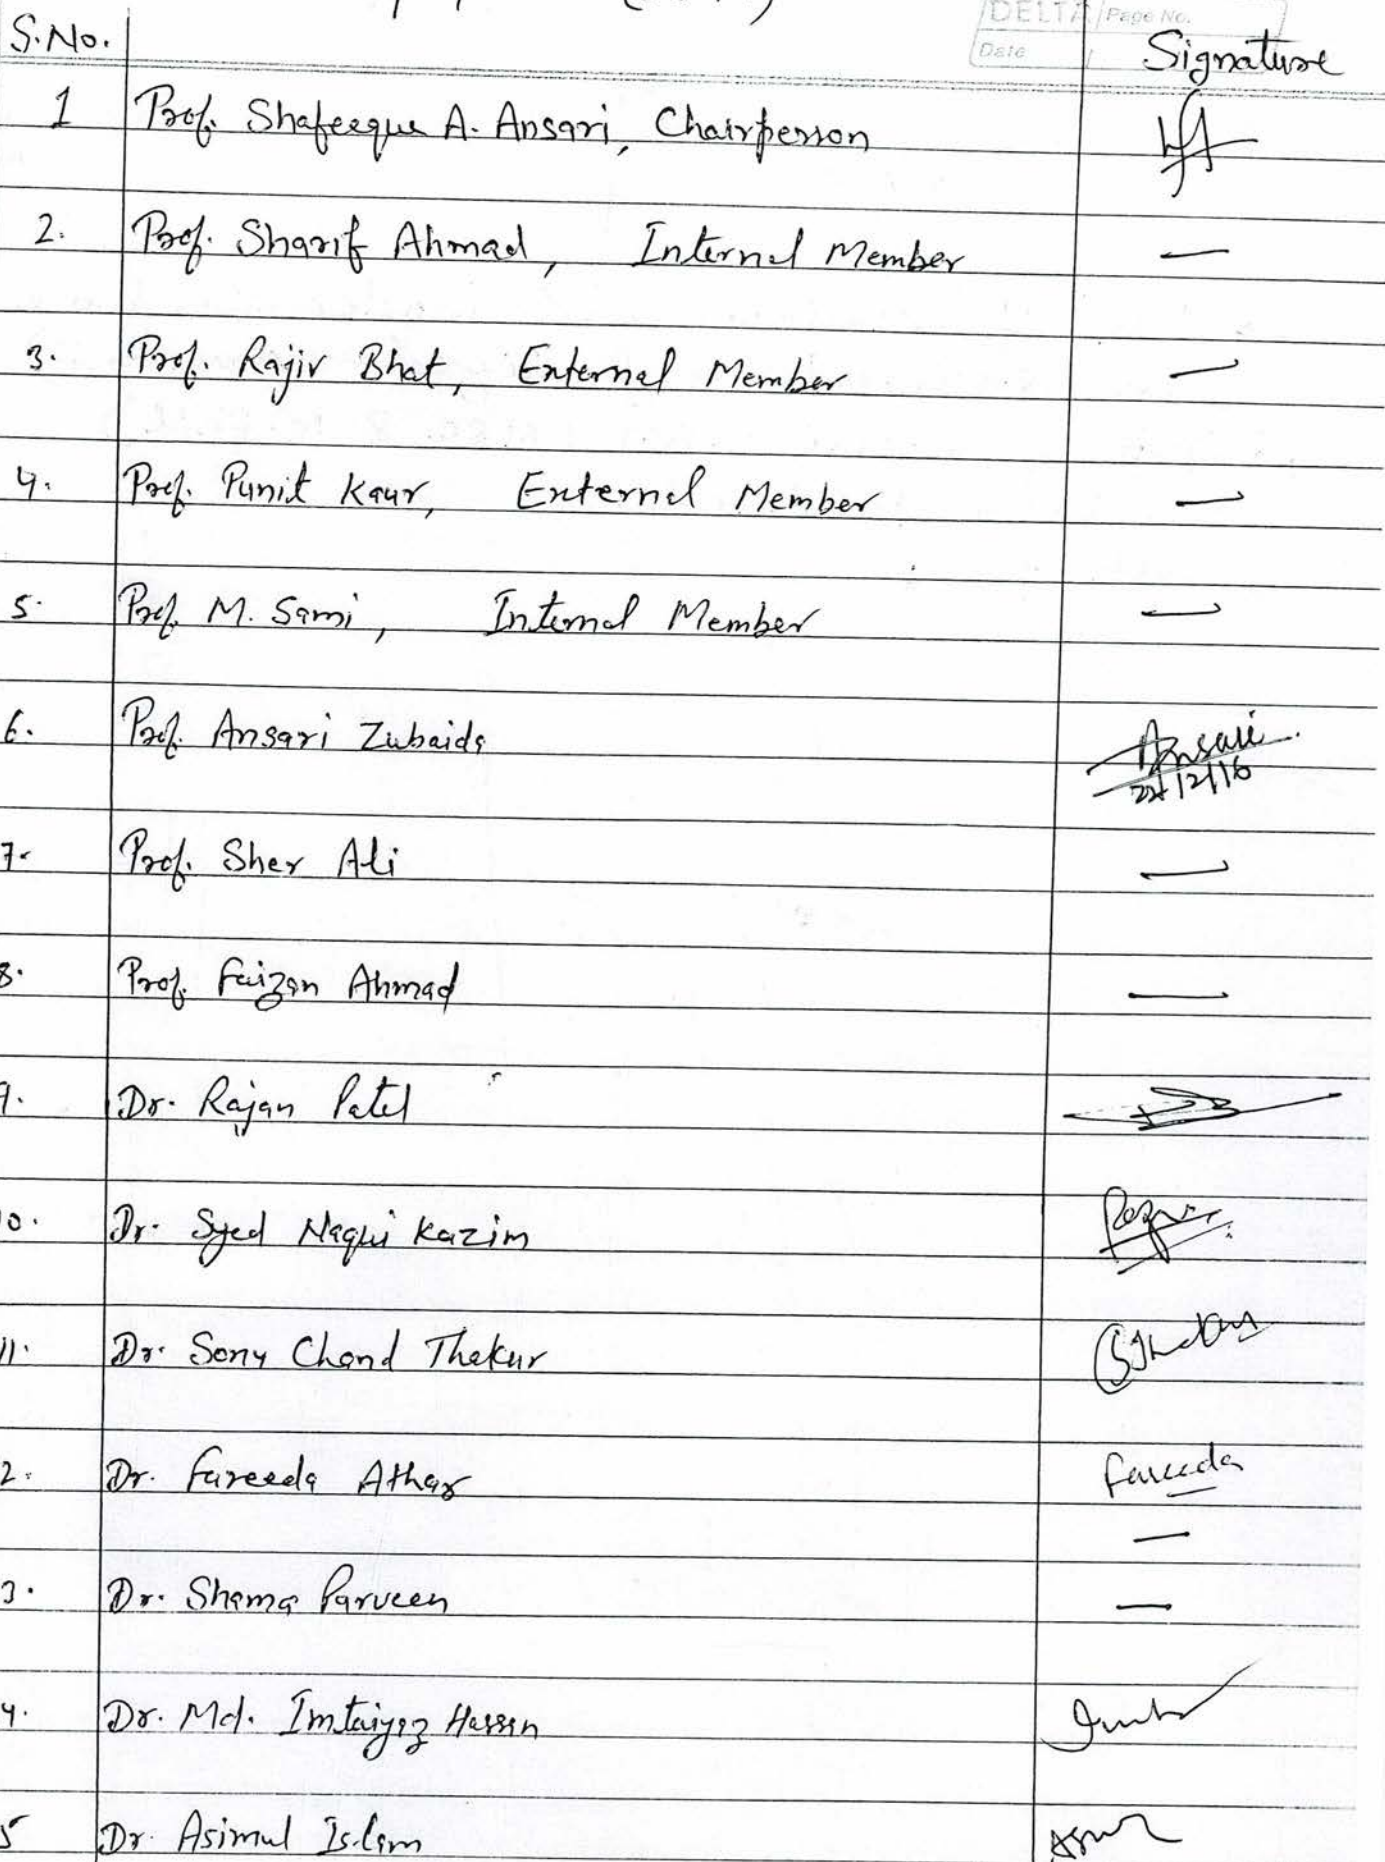 DELTA Page No.
Date
S.No. Signature
1 Prof. Shafeeque A. Ansari, Chairperson
2. Prof. Sharif Ahmad, Internal Member —
3. Prof. Rajiv Bhat, External Member —
4. Prof. Punit Kaur, External Member —
5. Prof. M. Sami, Internal Member —
6. Prof. Ansari Zubaida Ansari
22/12/16
7. Prof. Sher Ali —
8. Prof. Faizan Ahmad —
9. Dr. Rajan Patel
10. Dr. Syed Naqui Kazim
11. Dr. Sony Chand Thakur
2. Dr. Fareeda Athar Fareeda
—
3. Dr. Shama Parveen —
4. Dr. Md. Imtaiyaz Hassan
5 Dr. Asimul Islam